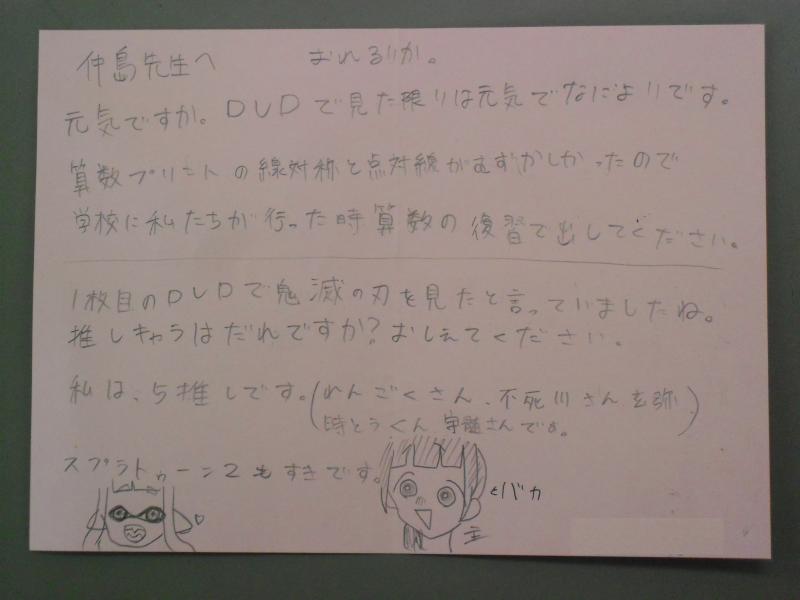 仲島先生へ
元気ですか。DVDで見た限りは元気でなによりです。
算数プリントの線対称と点対称がむずかしかったので
学校に私たちが行った時算数の復習で出してください。
1枚目のDVDで鬼滅の刃を見たと言っていましたね。
推しキャラはだれですか?おしえてください。
私は、5推しです。(れんごくさん、不死川さん玄弥、
時とうくん 宇髄さんです。)
スプラトゥーン2もすきです。
←バカ
主